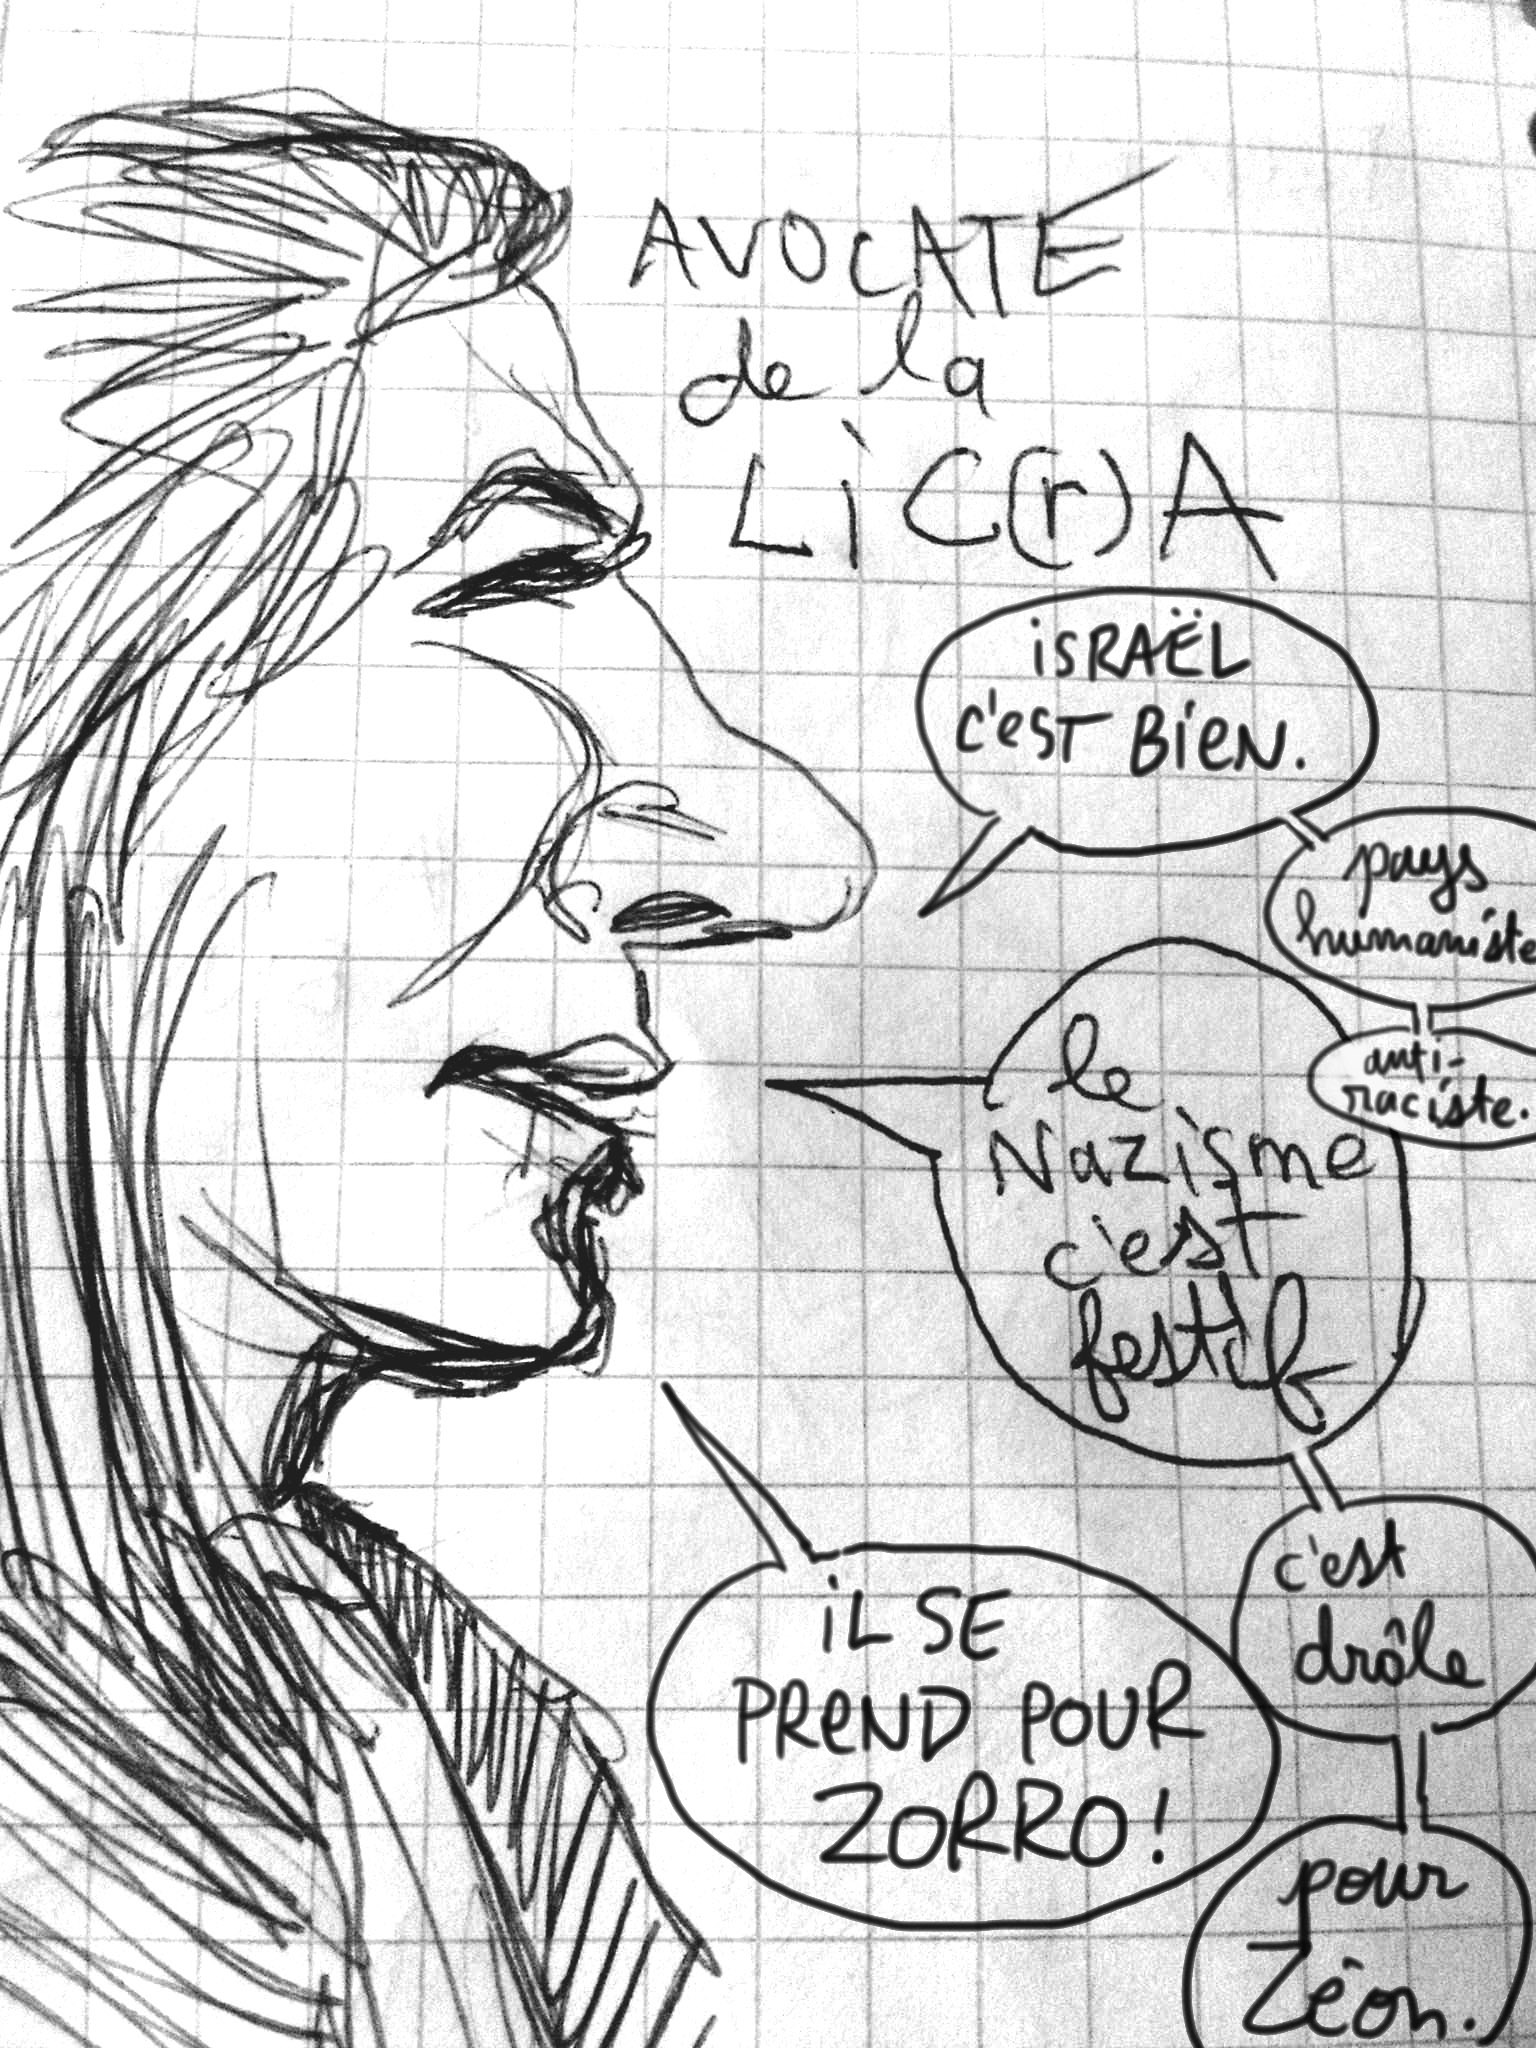 AVOCATE
de la
LiC(r)A
iSRAËL
c'eST BiEN.
pays
humaniste
anti-
raciste.
le
Nazisme
c'est
festif
c'est
drôle
pour
Zéon.
iL SE
PReND POUR
ZORRO!